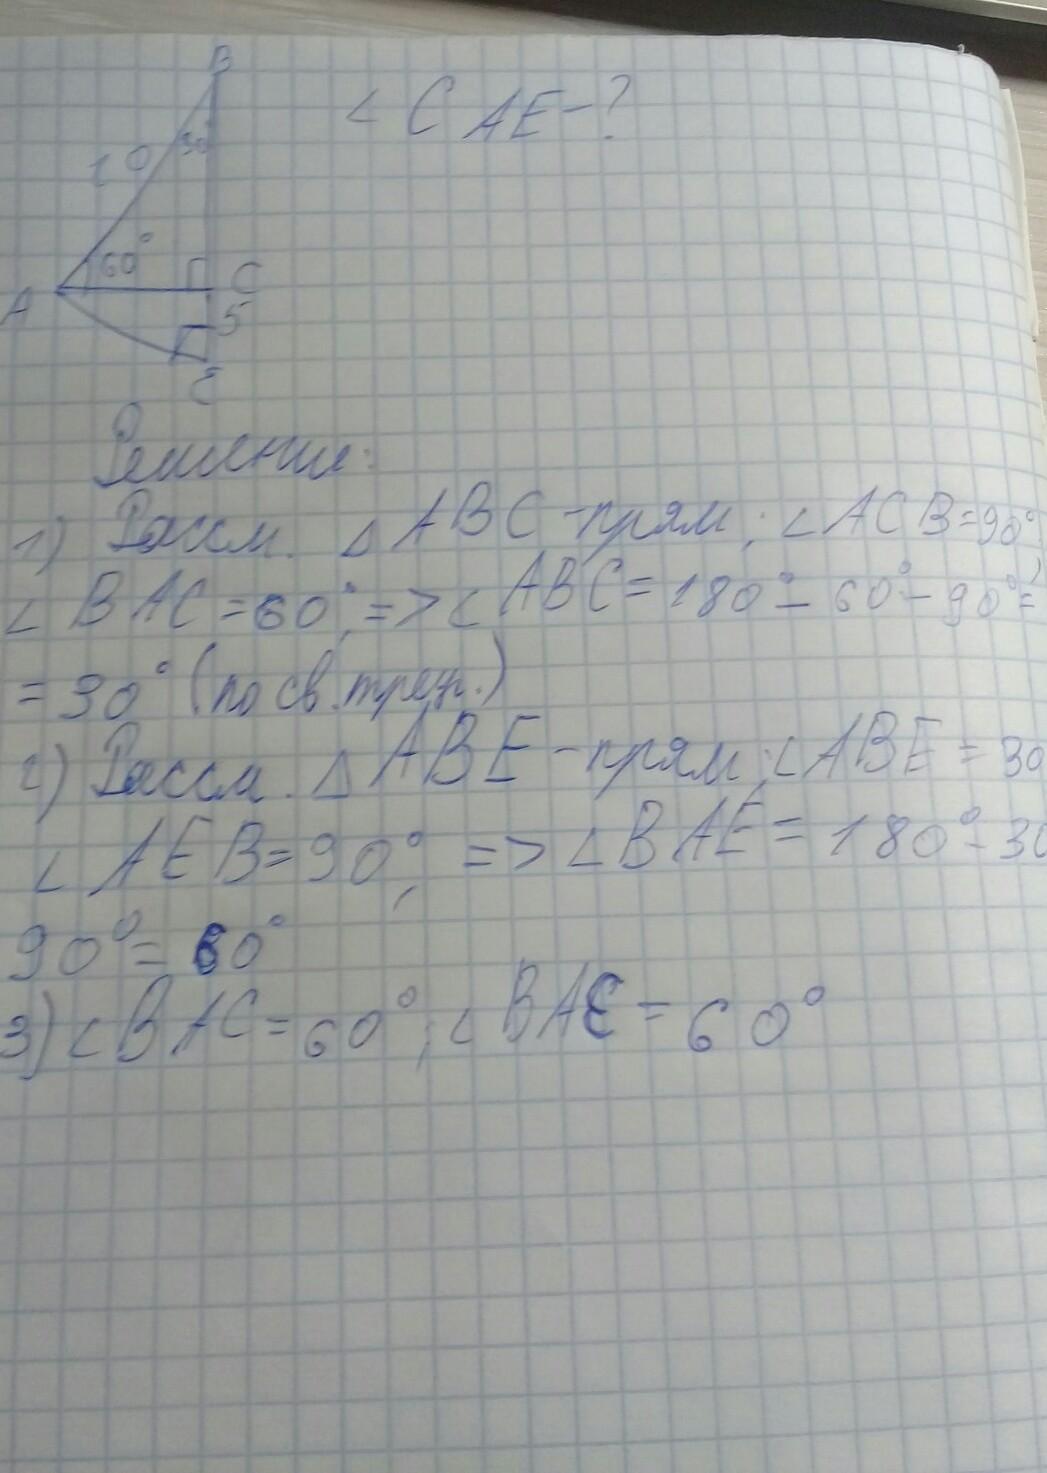 B
∠ CAE-?
30
10
60°
A
C
5
E
Решение:
1) Рассм. △ ABC-прям; ∠ ACB=90°,
∠ BAC=60°, => ∠ ABC=180°-60°-90°=
=30° (по св. треуг.)
2) Рассм. △ ABE-прям; ∠ ABE = 30
∠ AEB=90°, => ∠ BAE = 180°-30
90°= 60°
3) ∠ BAC=60°; ∠ BAE = 60°